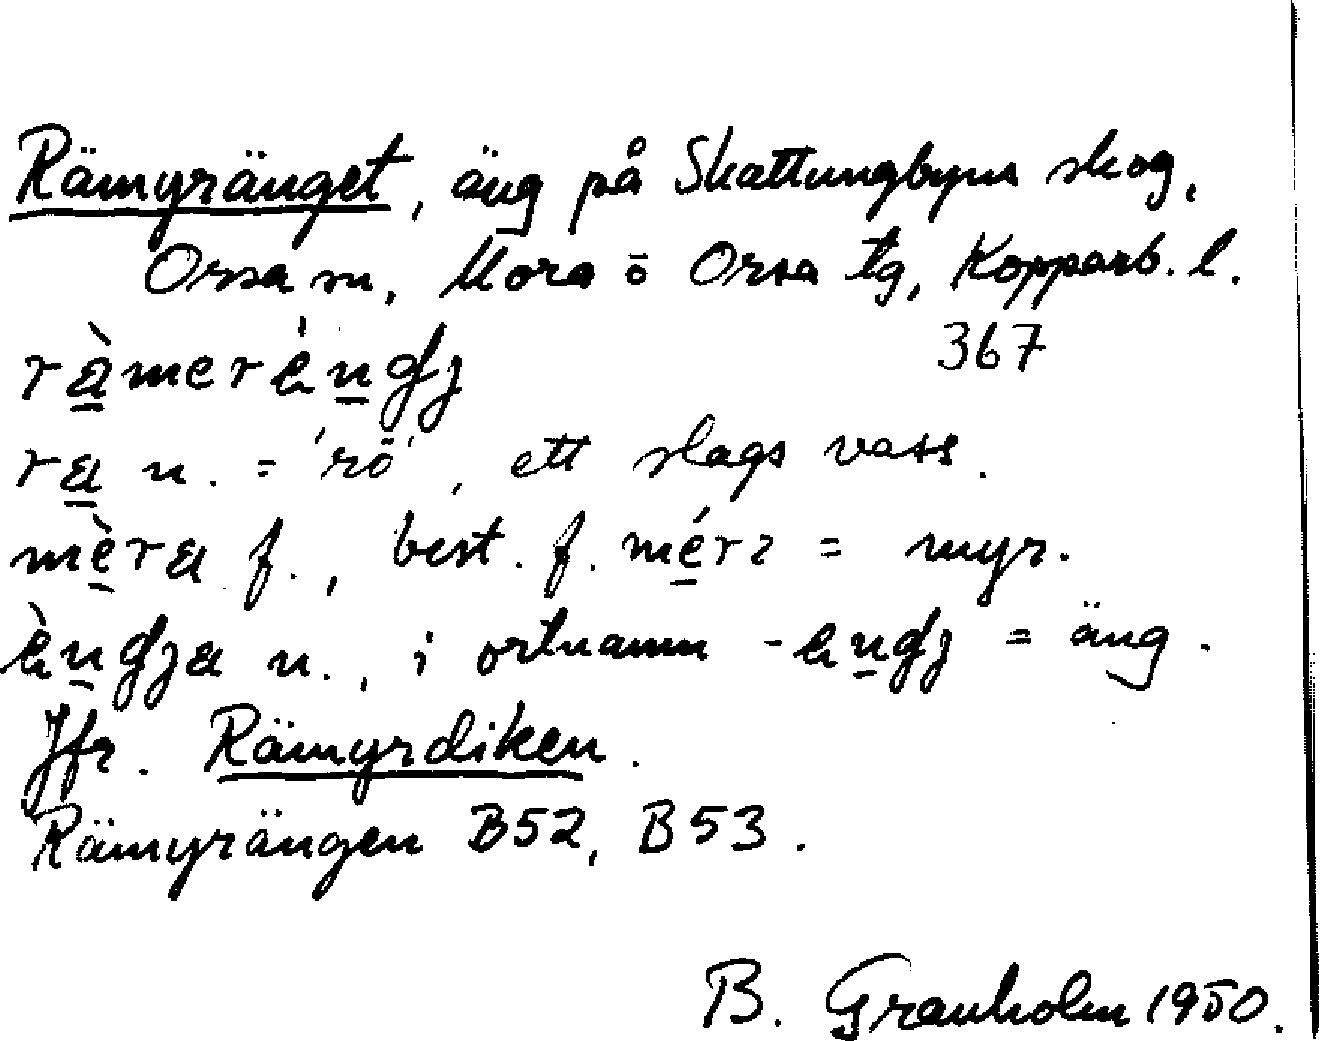 Rämyränget, äng på Skattungbyns skog,
Orsa sn, Mora o Orsa tg, Kopparb. l.
367
n. = 'rö', ett slags vass.
f., best. f. = myr.
n., i ortnamn = äng.
Jfr. Rämyrdiken.
Rämyrängen B52, B53.
B. Granholm 1950.